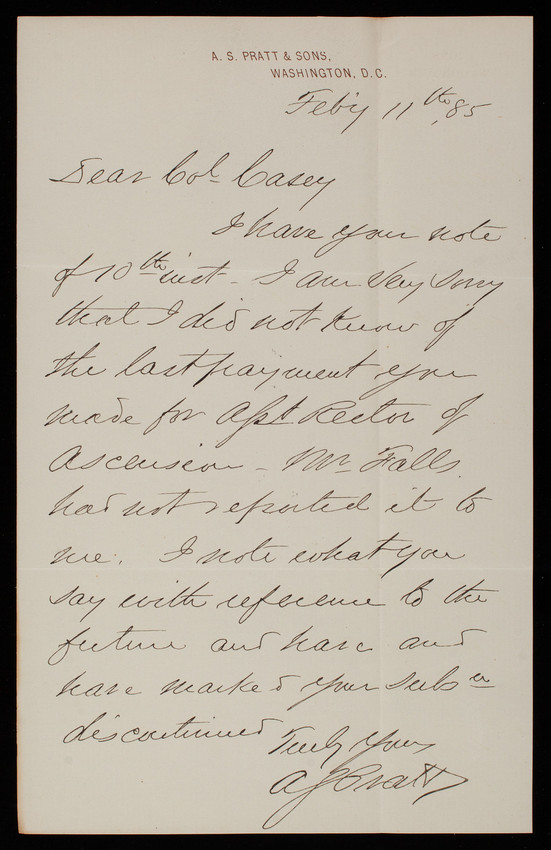 A. S. PRATT & SONS,
WASHINGTON, D.C.
Feb'y 11th, 85
Dear Col. Casey
I have your note
of 10th inst - I am very sorry
that I did not know of
the last payment you
made for Asst Rector of
Ascension - Mr Falls
had not reported it to
me. I note what you
say with reference to the
future and have and
have marked your subsn
discontinued
Truly Yours
A S Pratt